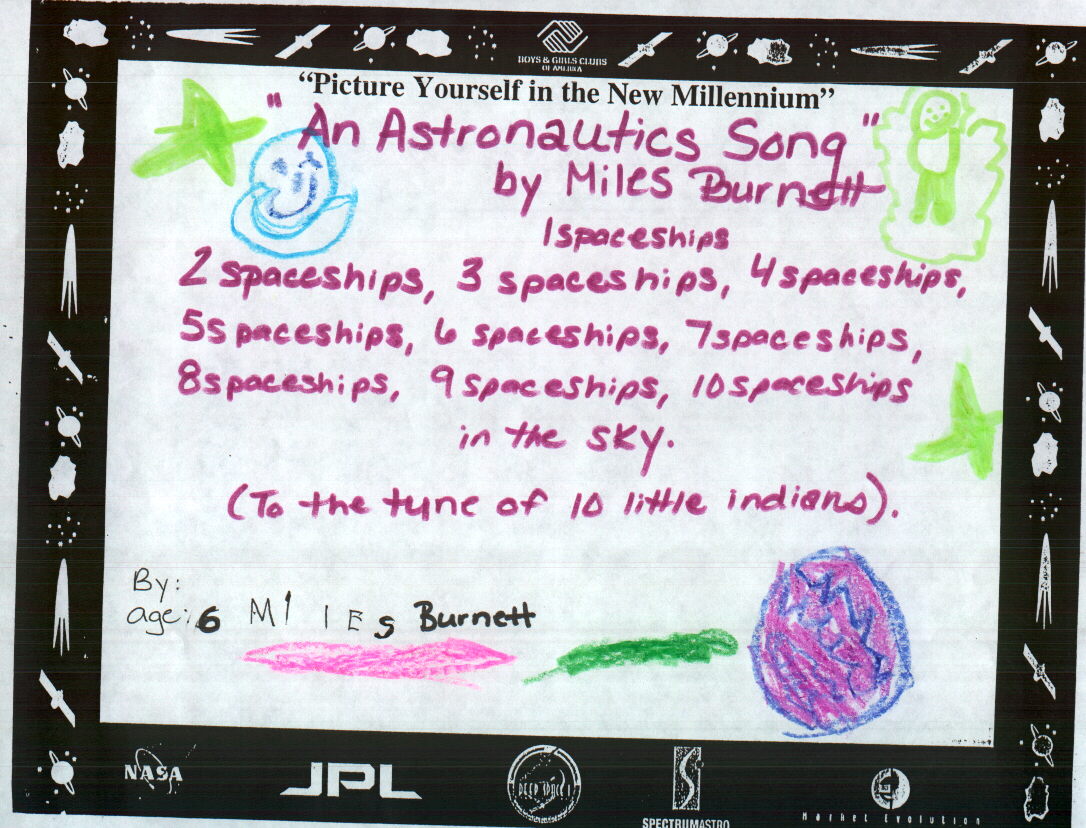 BOYS & GIRLS CLUBS
OF AMERICA
“Picture Yourself in the New Millennium”
"An Astronautics Song"
by Miles Burnett
1spaceships
2 spaceships, 3 spaceships, 4 spaceships,
5spaceships, 6 spaceships, 7spaceships,
8spaceships, 9 spaceships, 10 spaceships
in the sky.
(To the tune of 10 little indians).
By:
age: 6 MIlEs Burnett
NASA
JPL
DEEP SPACE 1
SPECTRUMASTRO
Market Evolution